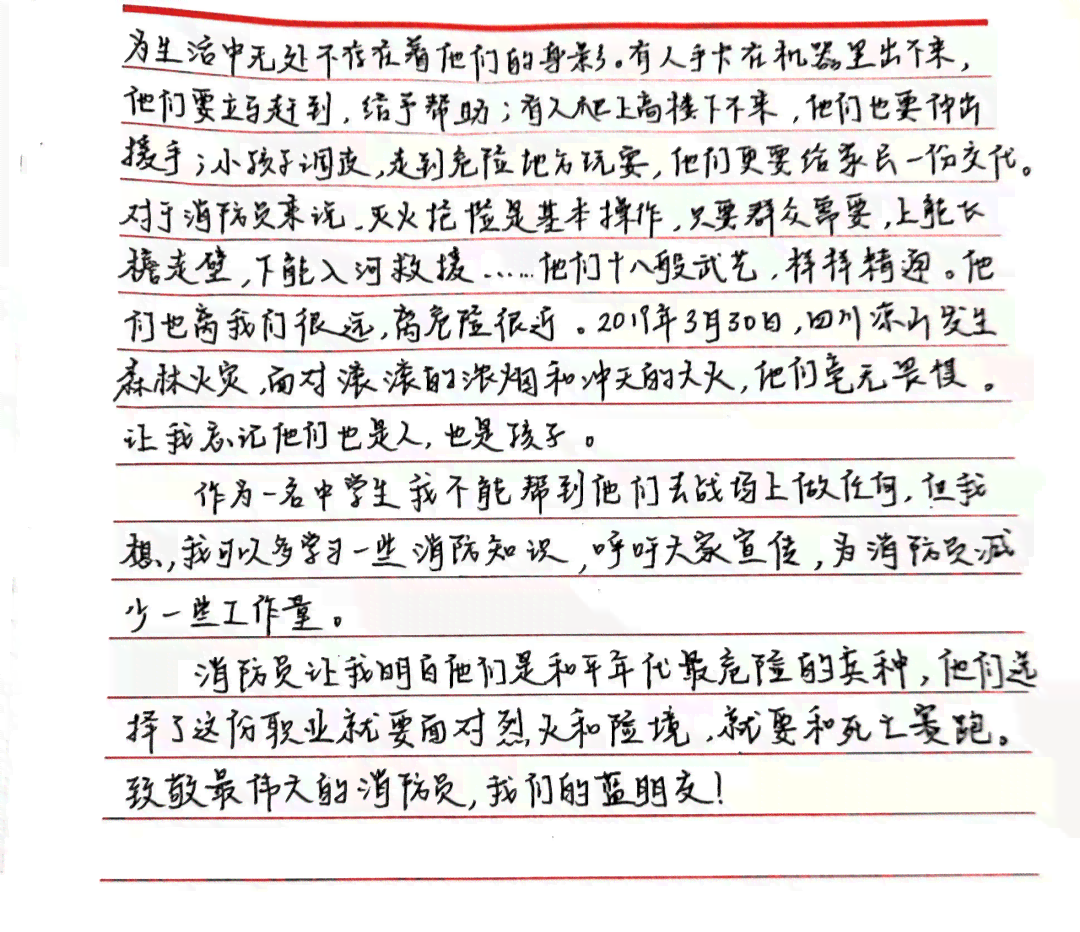 为生活中无处不存在着他们的身影。有人手卡在机器里出不来，
他们要立马赶到，给予帮助；有人爬上高楼下不来，他们也要伸出
援手；小孩子调皮，走到危险地方玩耍，他们更要给家民一份交代。
对于消防员来说，灭火抢险是基本操作，只要群众需要，上能飞
檐走壁，下能入河救援……他们十八般武艺，样样精通。他
们也离我们很远，离危险很近。2019年3月30日，四川凉山发生
森林火灾，面对滚滚的浓烟和冲天的大火，他们毫无畏惧。
让我忘记他们也是人，也是孩子。
作为一名中学生我不能帮到他们去战场上做任何，但我
想，我可以多学习一些消防知识，呼吁大家宣传，为消防员减
少一些工作量。
消防员让我明白他们是和平年代最危险的兵种，他们选
择了这份职业就要面对烈火和险境，就要和死亡赛跑。
致敬最伟大的消防员，我们的蓝朋友！